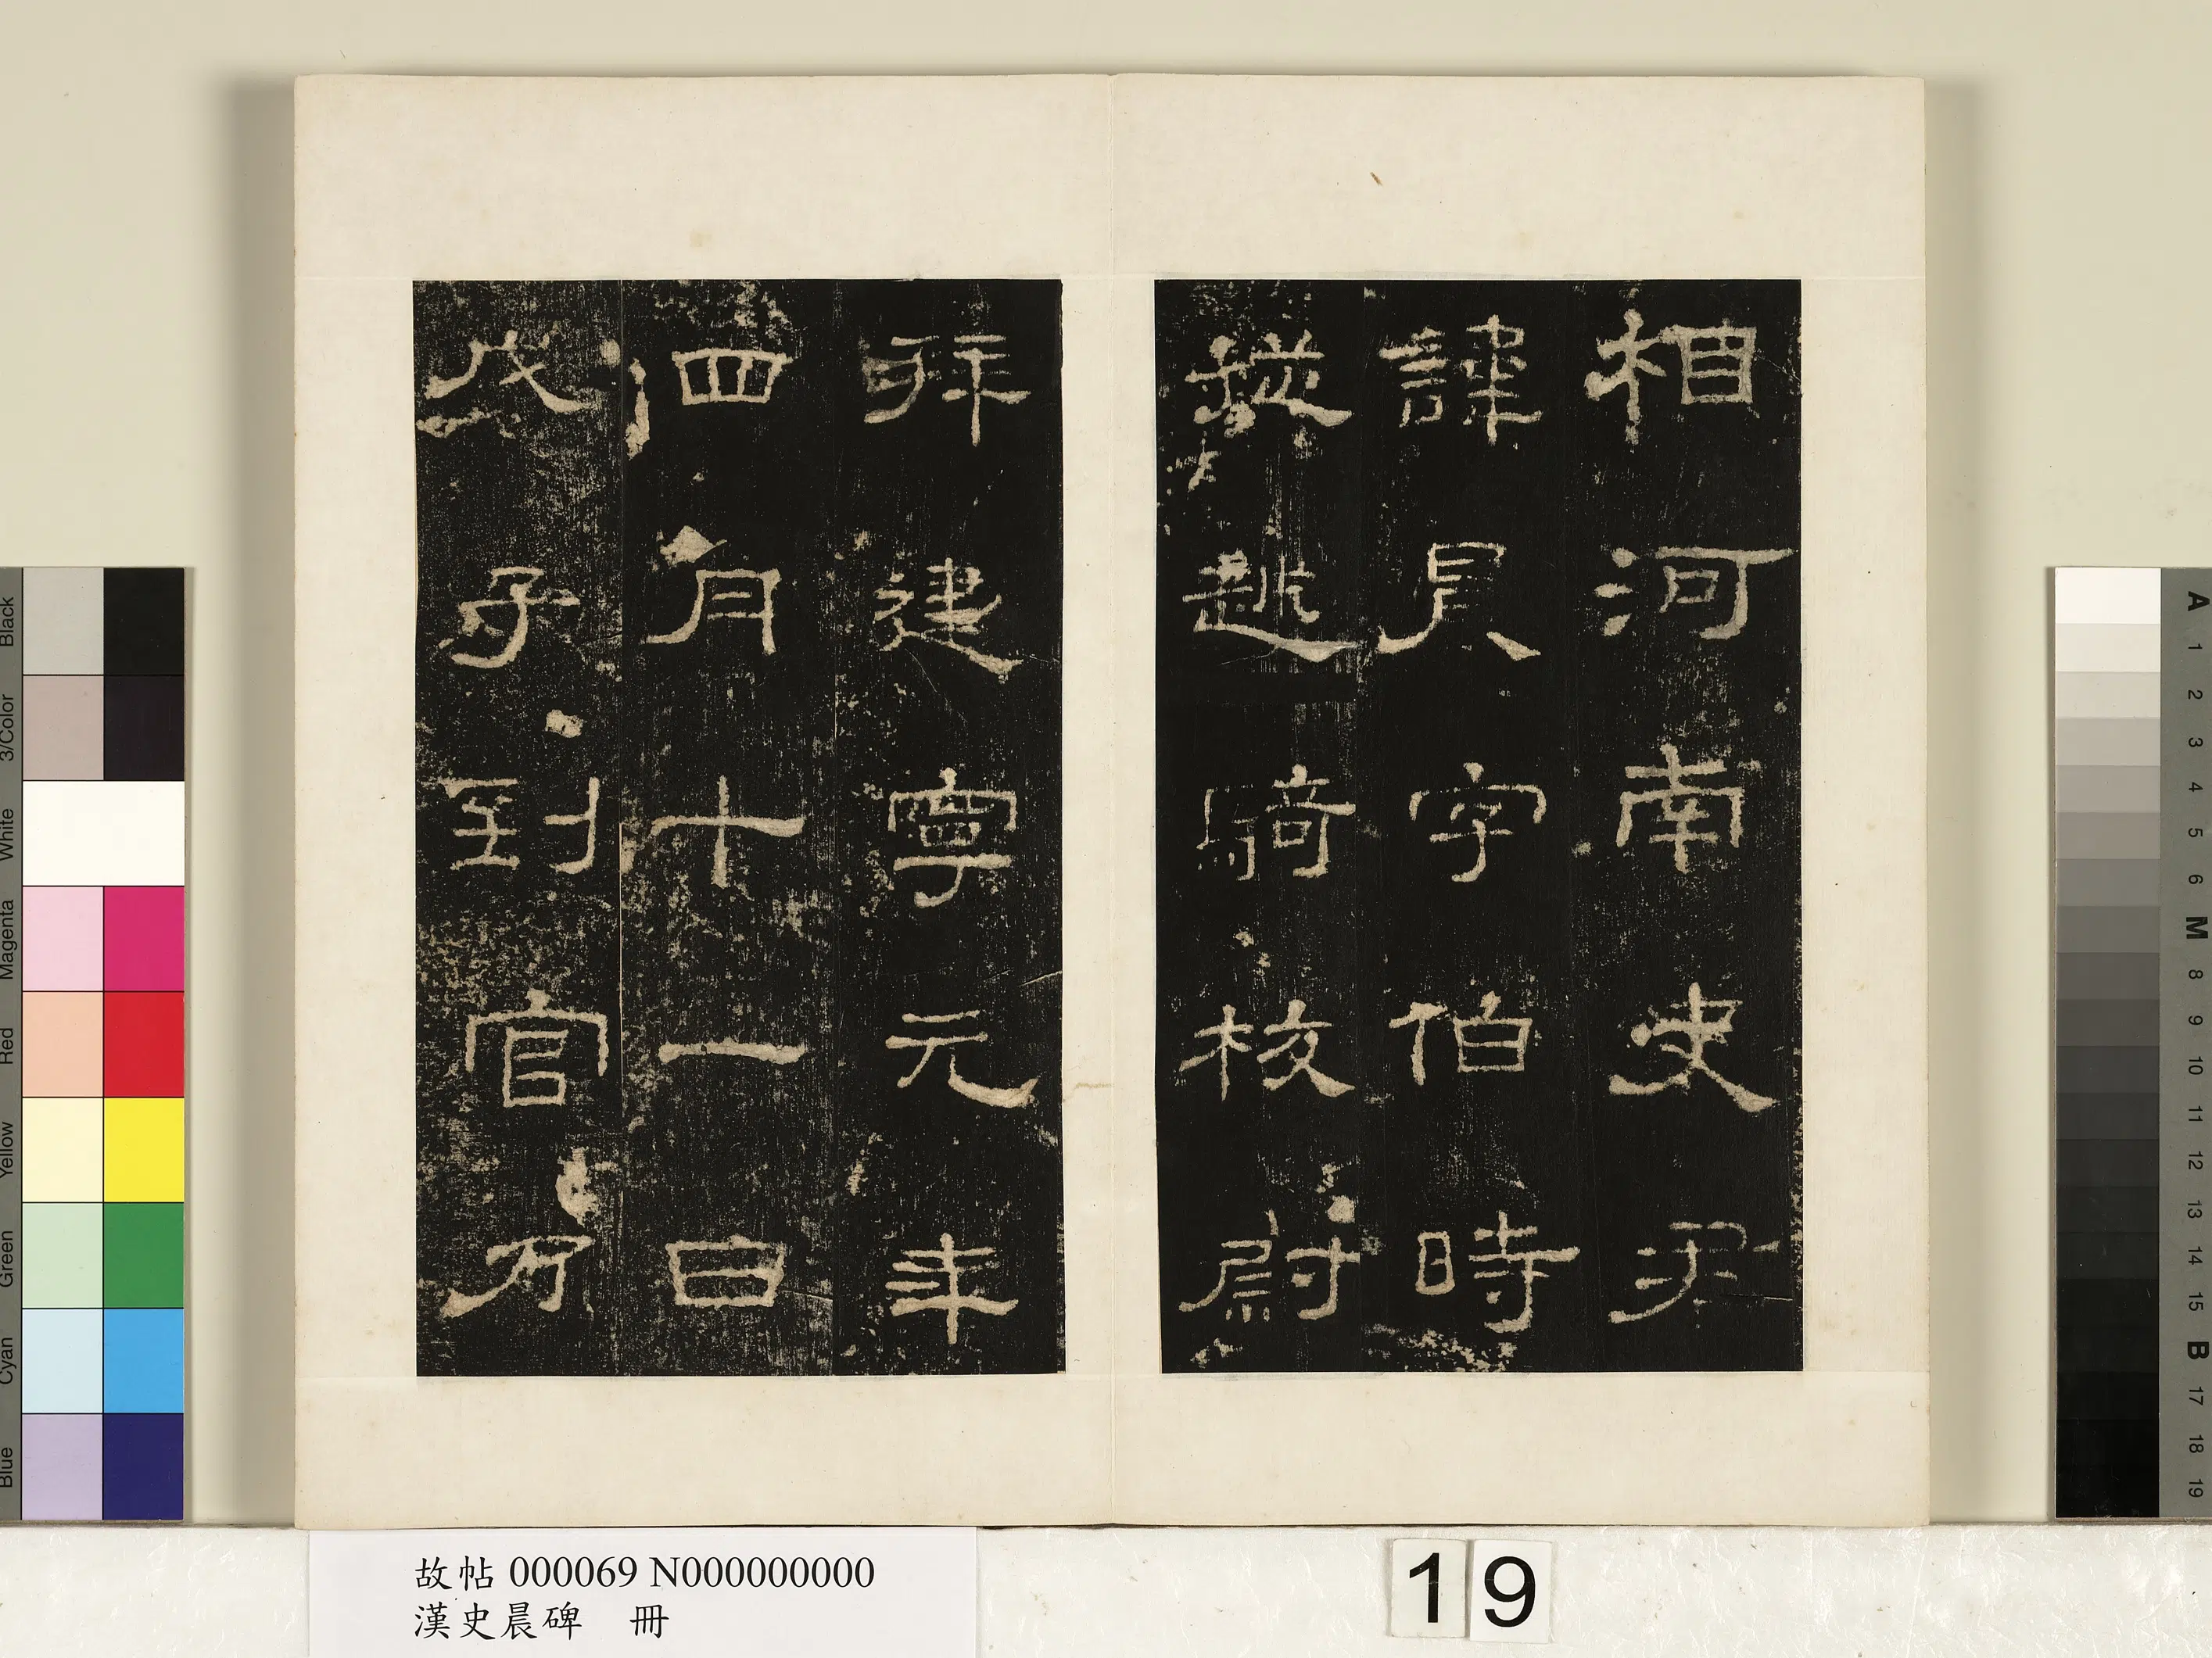 相河南史君
諱晨字伯時
從越騎校尉
拜建寧元年
四月十一日
戊子到官乃
故帖 000069 N000000000
漢史晨碑　冊
19
Black
3/Color
White
Magenta
Red
Yellow
Green
Cyan
Blue
A 1 2 3 4 5 6 M 8 9 10 11 12 13 14 15 B 17 18 19